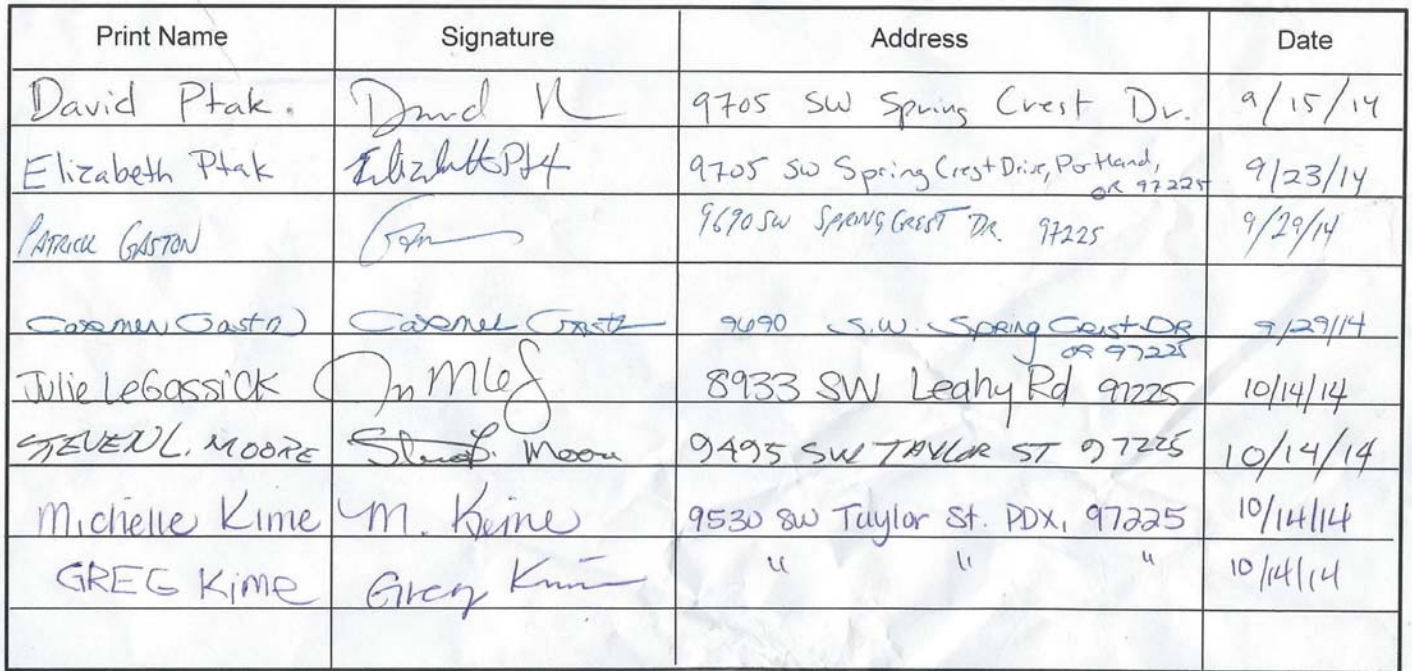 Print Name Signature Address Date
David Ptak. David 9705 SW Spring Crest Dr. 9/15/14
Elizabeth Ptak Elizabeth Ptak 9705 SW Spring Crest Drive, Portland,
OR 97225 9/23/14
PATRICK GASTON 9690 SW SPRING CREST DR. 97225 9/29/14
Carmen Gaston Carmen Gaston 9690 S.W. Spring Crest DR
OR 97225 9/29/14
Julie LeGassick 8933 SW Leahy Rd 97225 10/14/14
STEVEN L. MOORE Steven L. Moore 9495 SW TAYLOR ST 97225 10/14/14
Michelle Kime M. Kime 9530 SW Taylor St. PDX, 97225 10/14/14
GREG Kime Greg Kime " " " 10/14/14